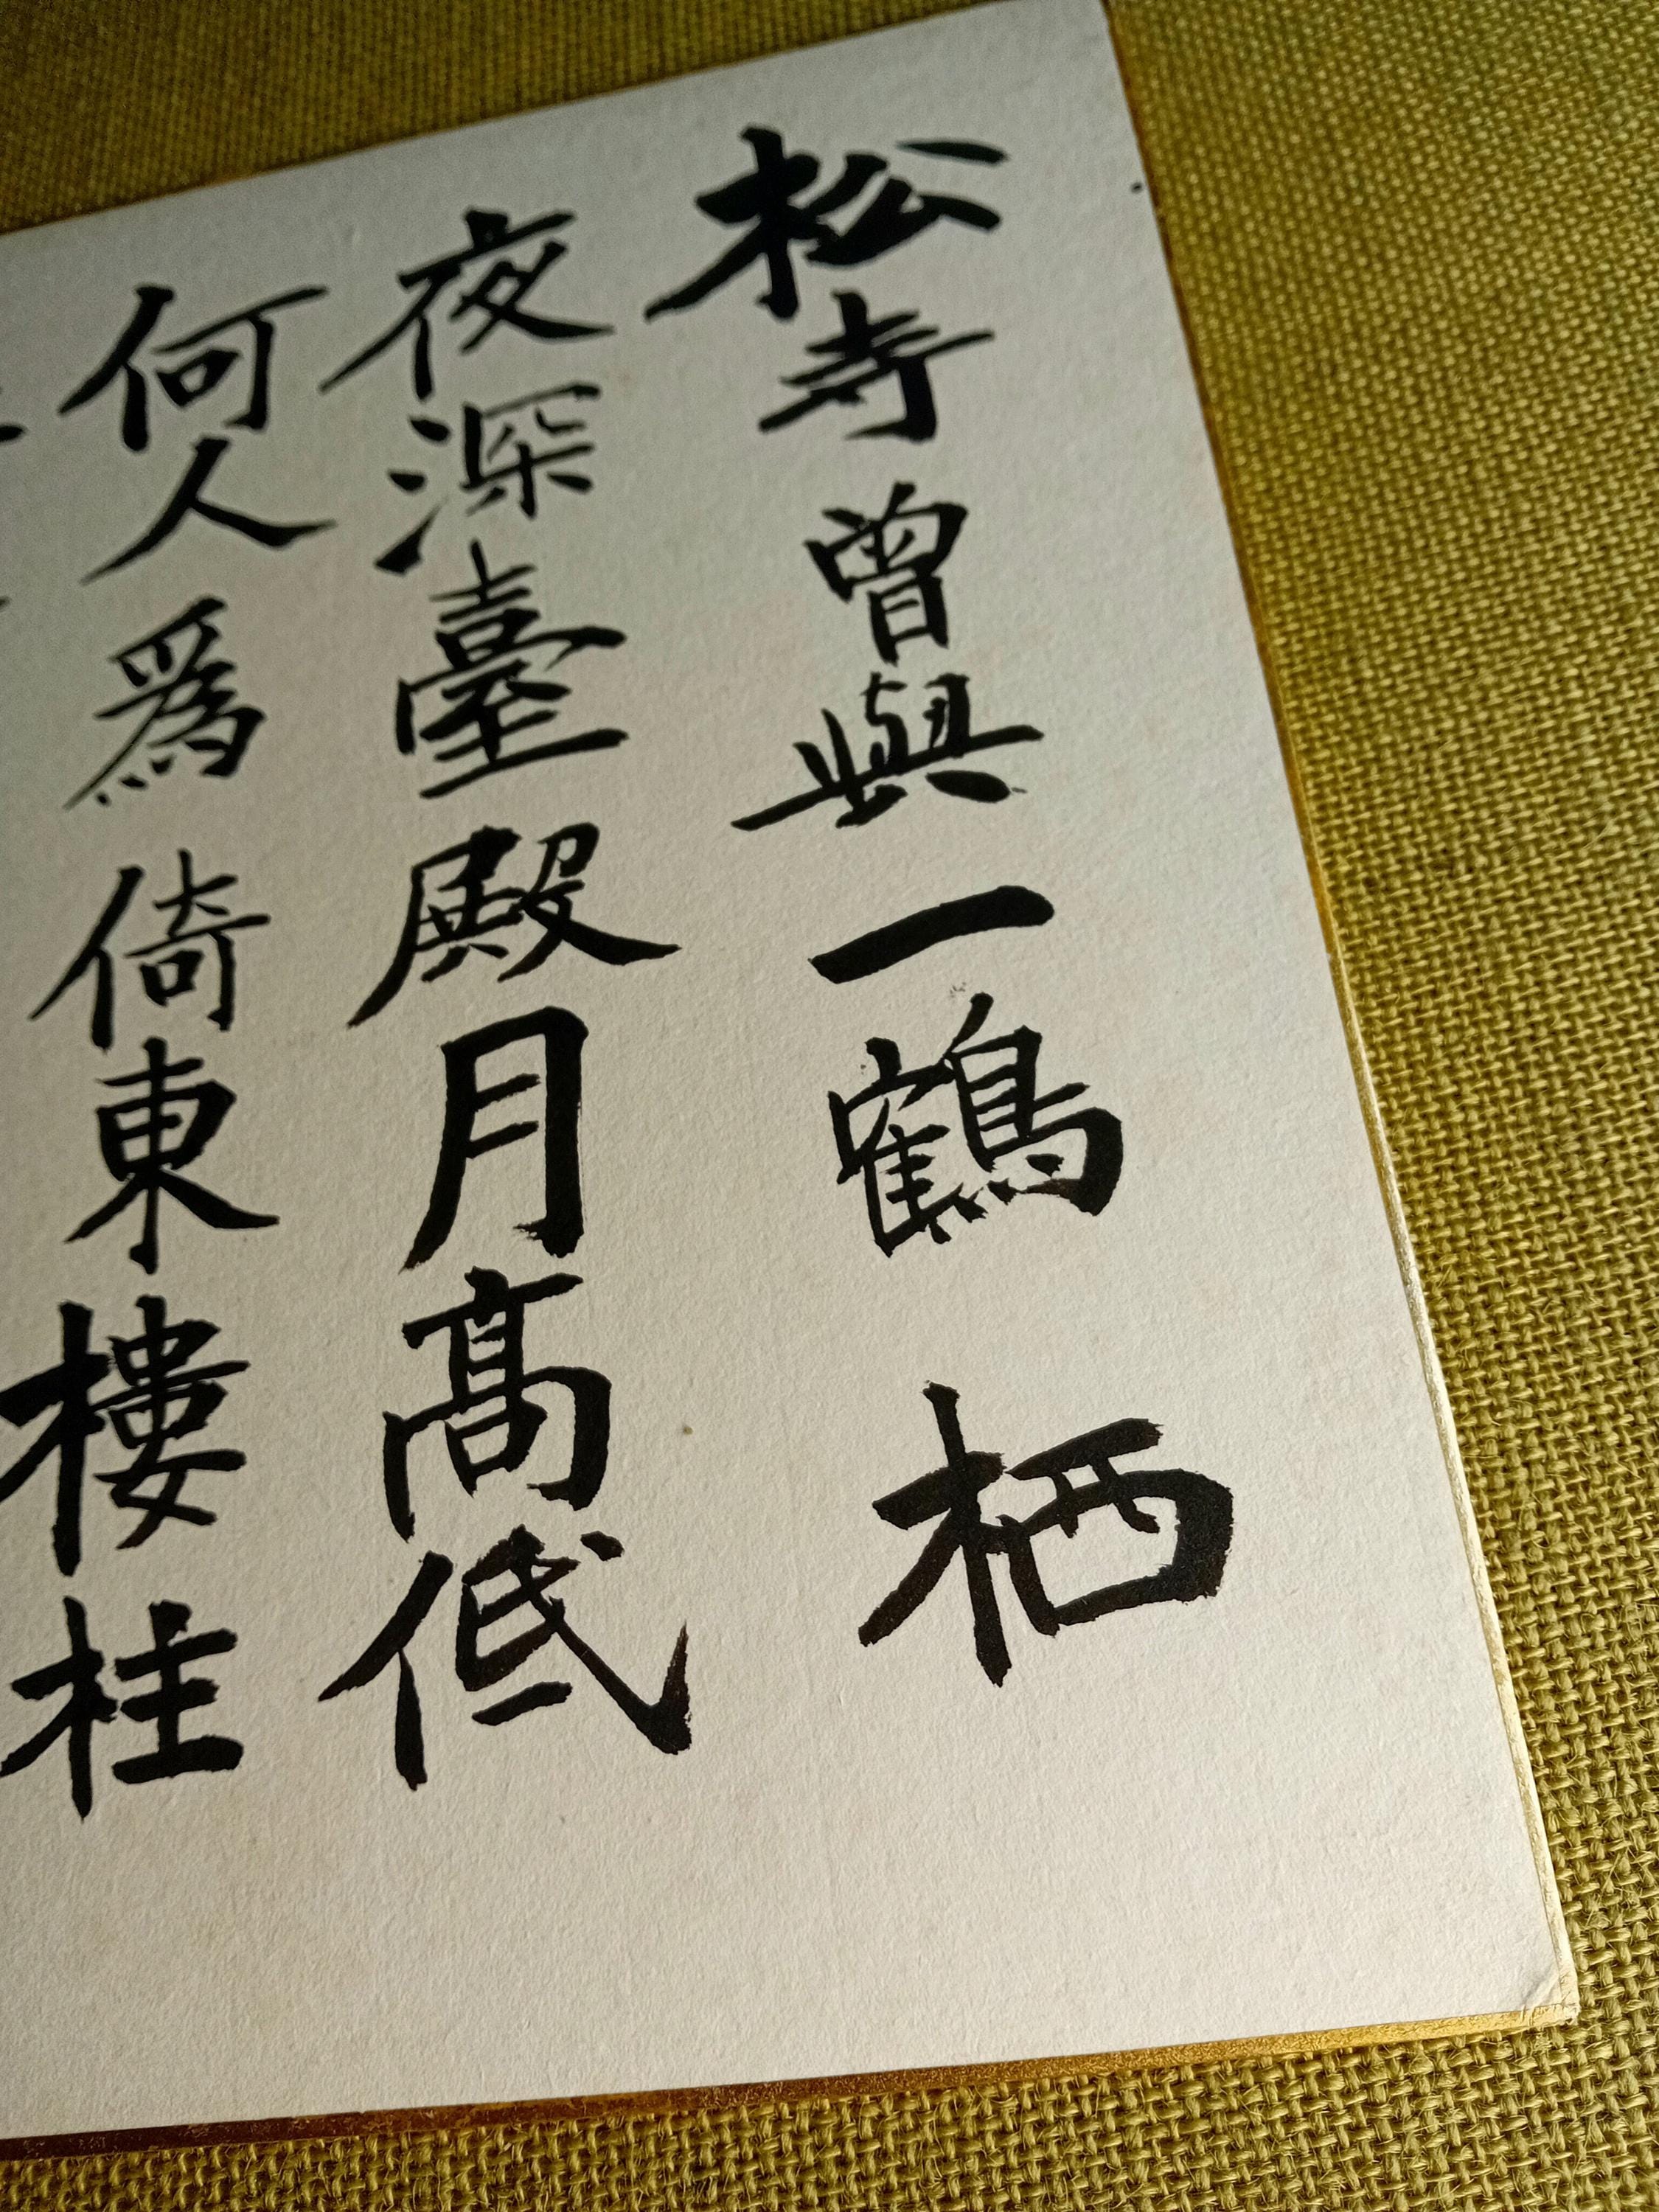 松寺曾與一鶴栖
夜深臺殿月髙低
何人爲倚東樓柱